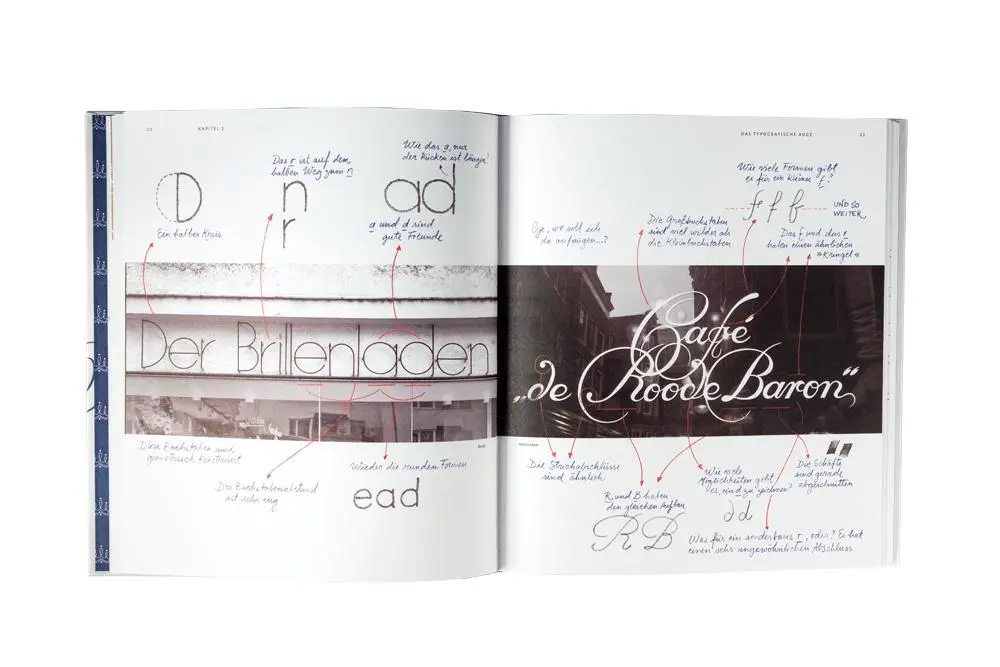 KAPITEL 2
D
Ein halber Kreis
Das r ist auf dem
halben Weg zum n
n
r
Wie das a, nur
der Rücken ist länger!
ad
a und d sind
gute Freunde
Der Brillenladen
Diese Buchstaben sind
geometrisch konstruiert
Der Buchstabenabstand
ist sehr eng
Wieder die runden Formen
ead
DAS TYPOGRAFISCHE AUGE
Oje, wo soll ich
da anfangen...?
Die Großbuchstaben
sind viel wilder als
die Kleinbuchstaben
Wie viele Formen gibt
es für ein kleines f?
f f f
UND SO
WEITER
Das f und das r
haben einen ähnlichen
»Kringel«
Café
„de Roode Baron“
Die Strichabschlüsse
sind ähnlich
R und B haben
den gleichen Aufbau
R B
Wie viele
Möglichkeiten gibt
es, ein d zu zeichnen?
d d
Die Schäfte
sind gerade
abgeschnitten
Was für ein sonderbares r, oder? Es hat
einen sehr ungewöhnlichen Abschluss